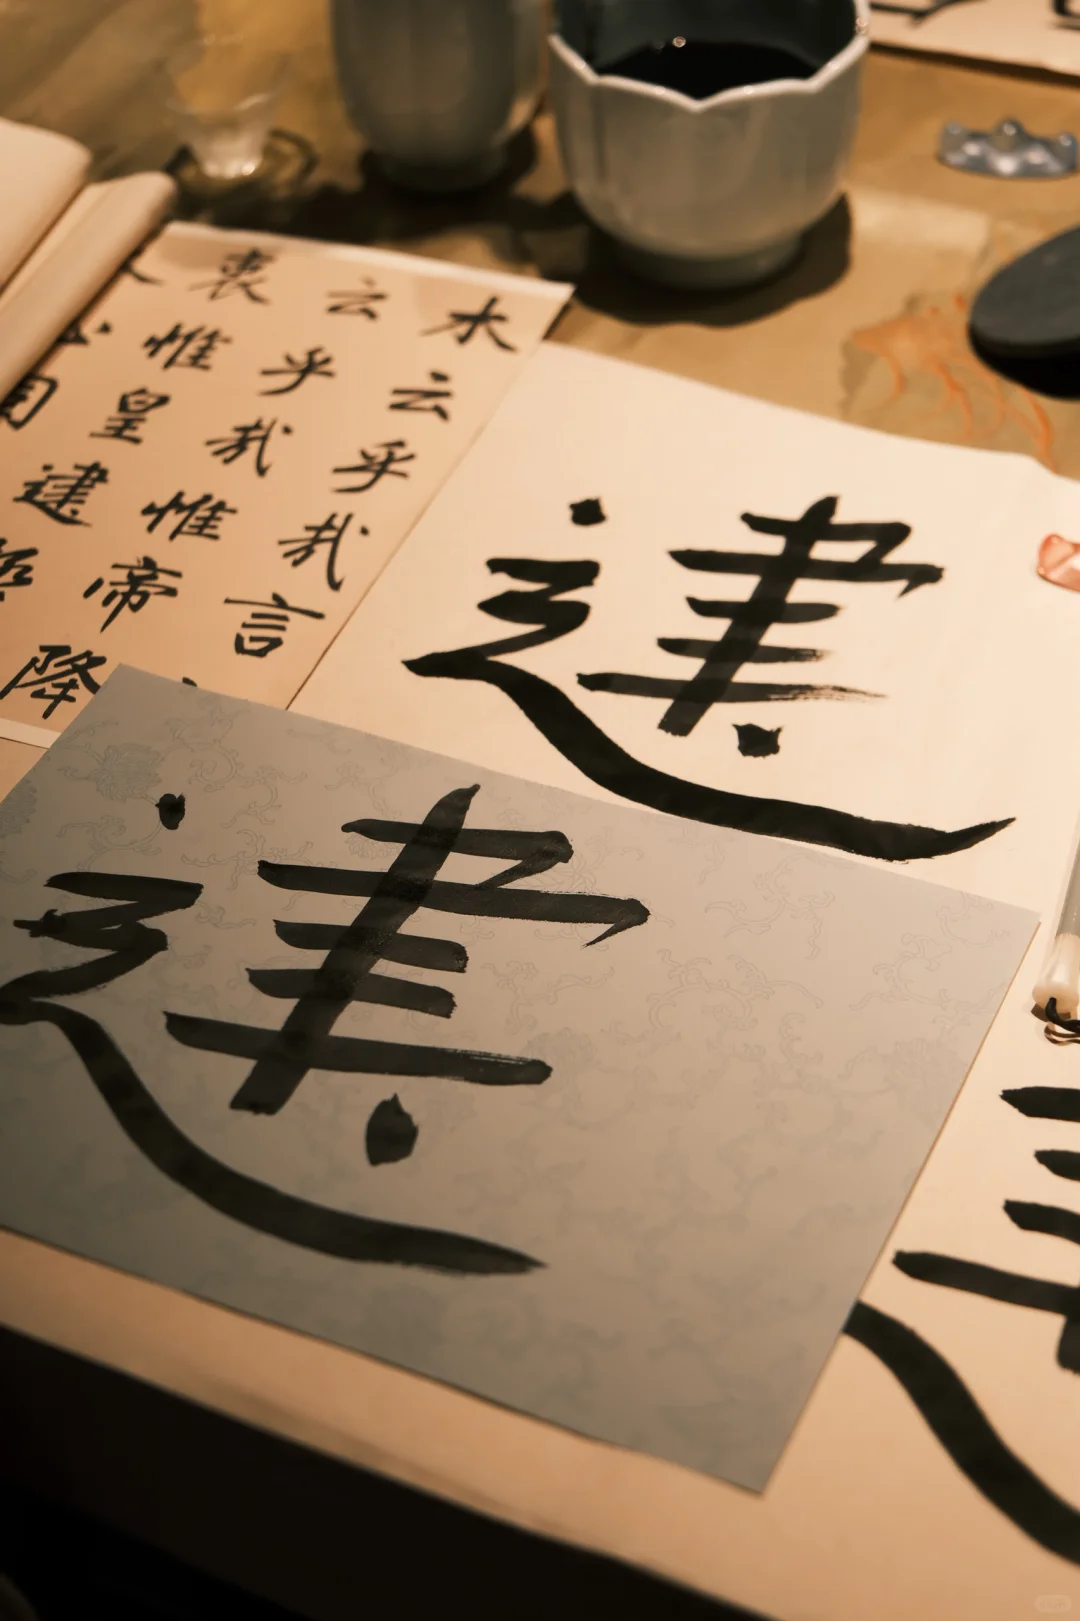 木云乎哉言
云乎哉惟帝降
衷惟皇建
建
建